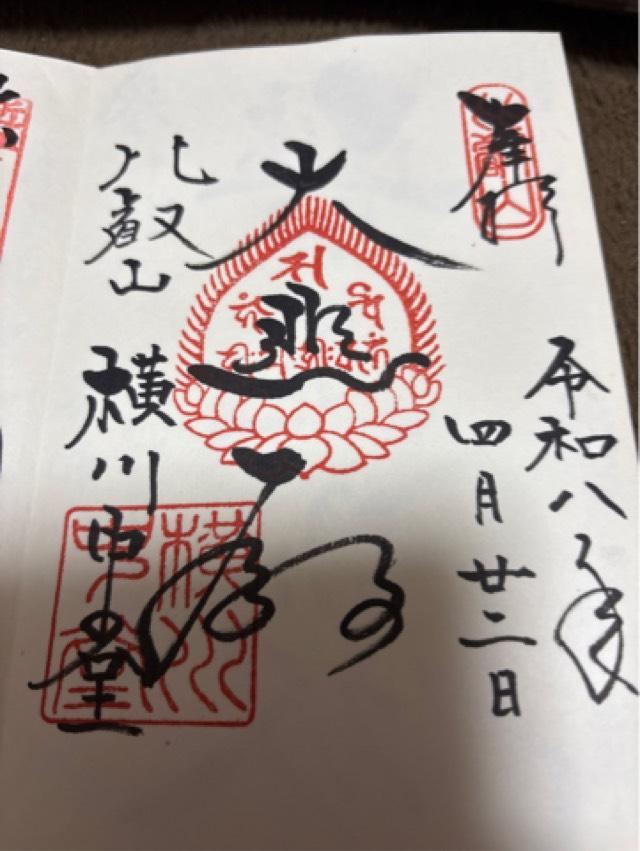 奉拝
令和八年
四月廿二日
大悲
比叡山
横川中堂
横川
中堂